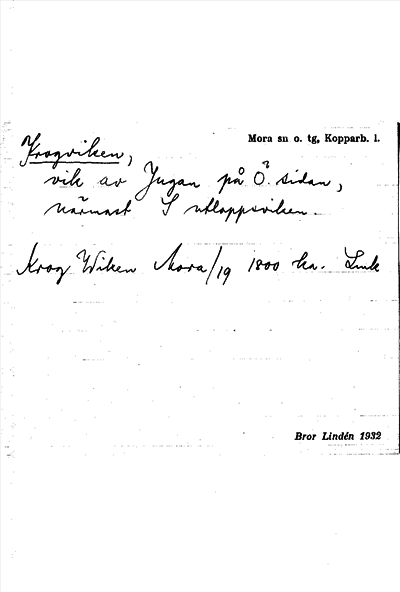 Mora sn o. tg, Kopparb. l.
Krogviken,
vik av Jugan på Ö. sidan,
närmast S utloppsviken.
Krog Wiken Mora/19 1800 ka. Lmk
Bror Lindén 1932